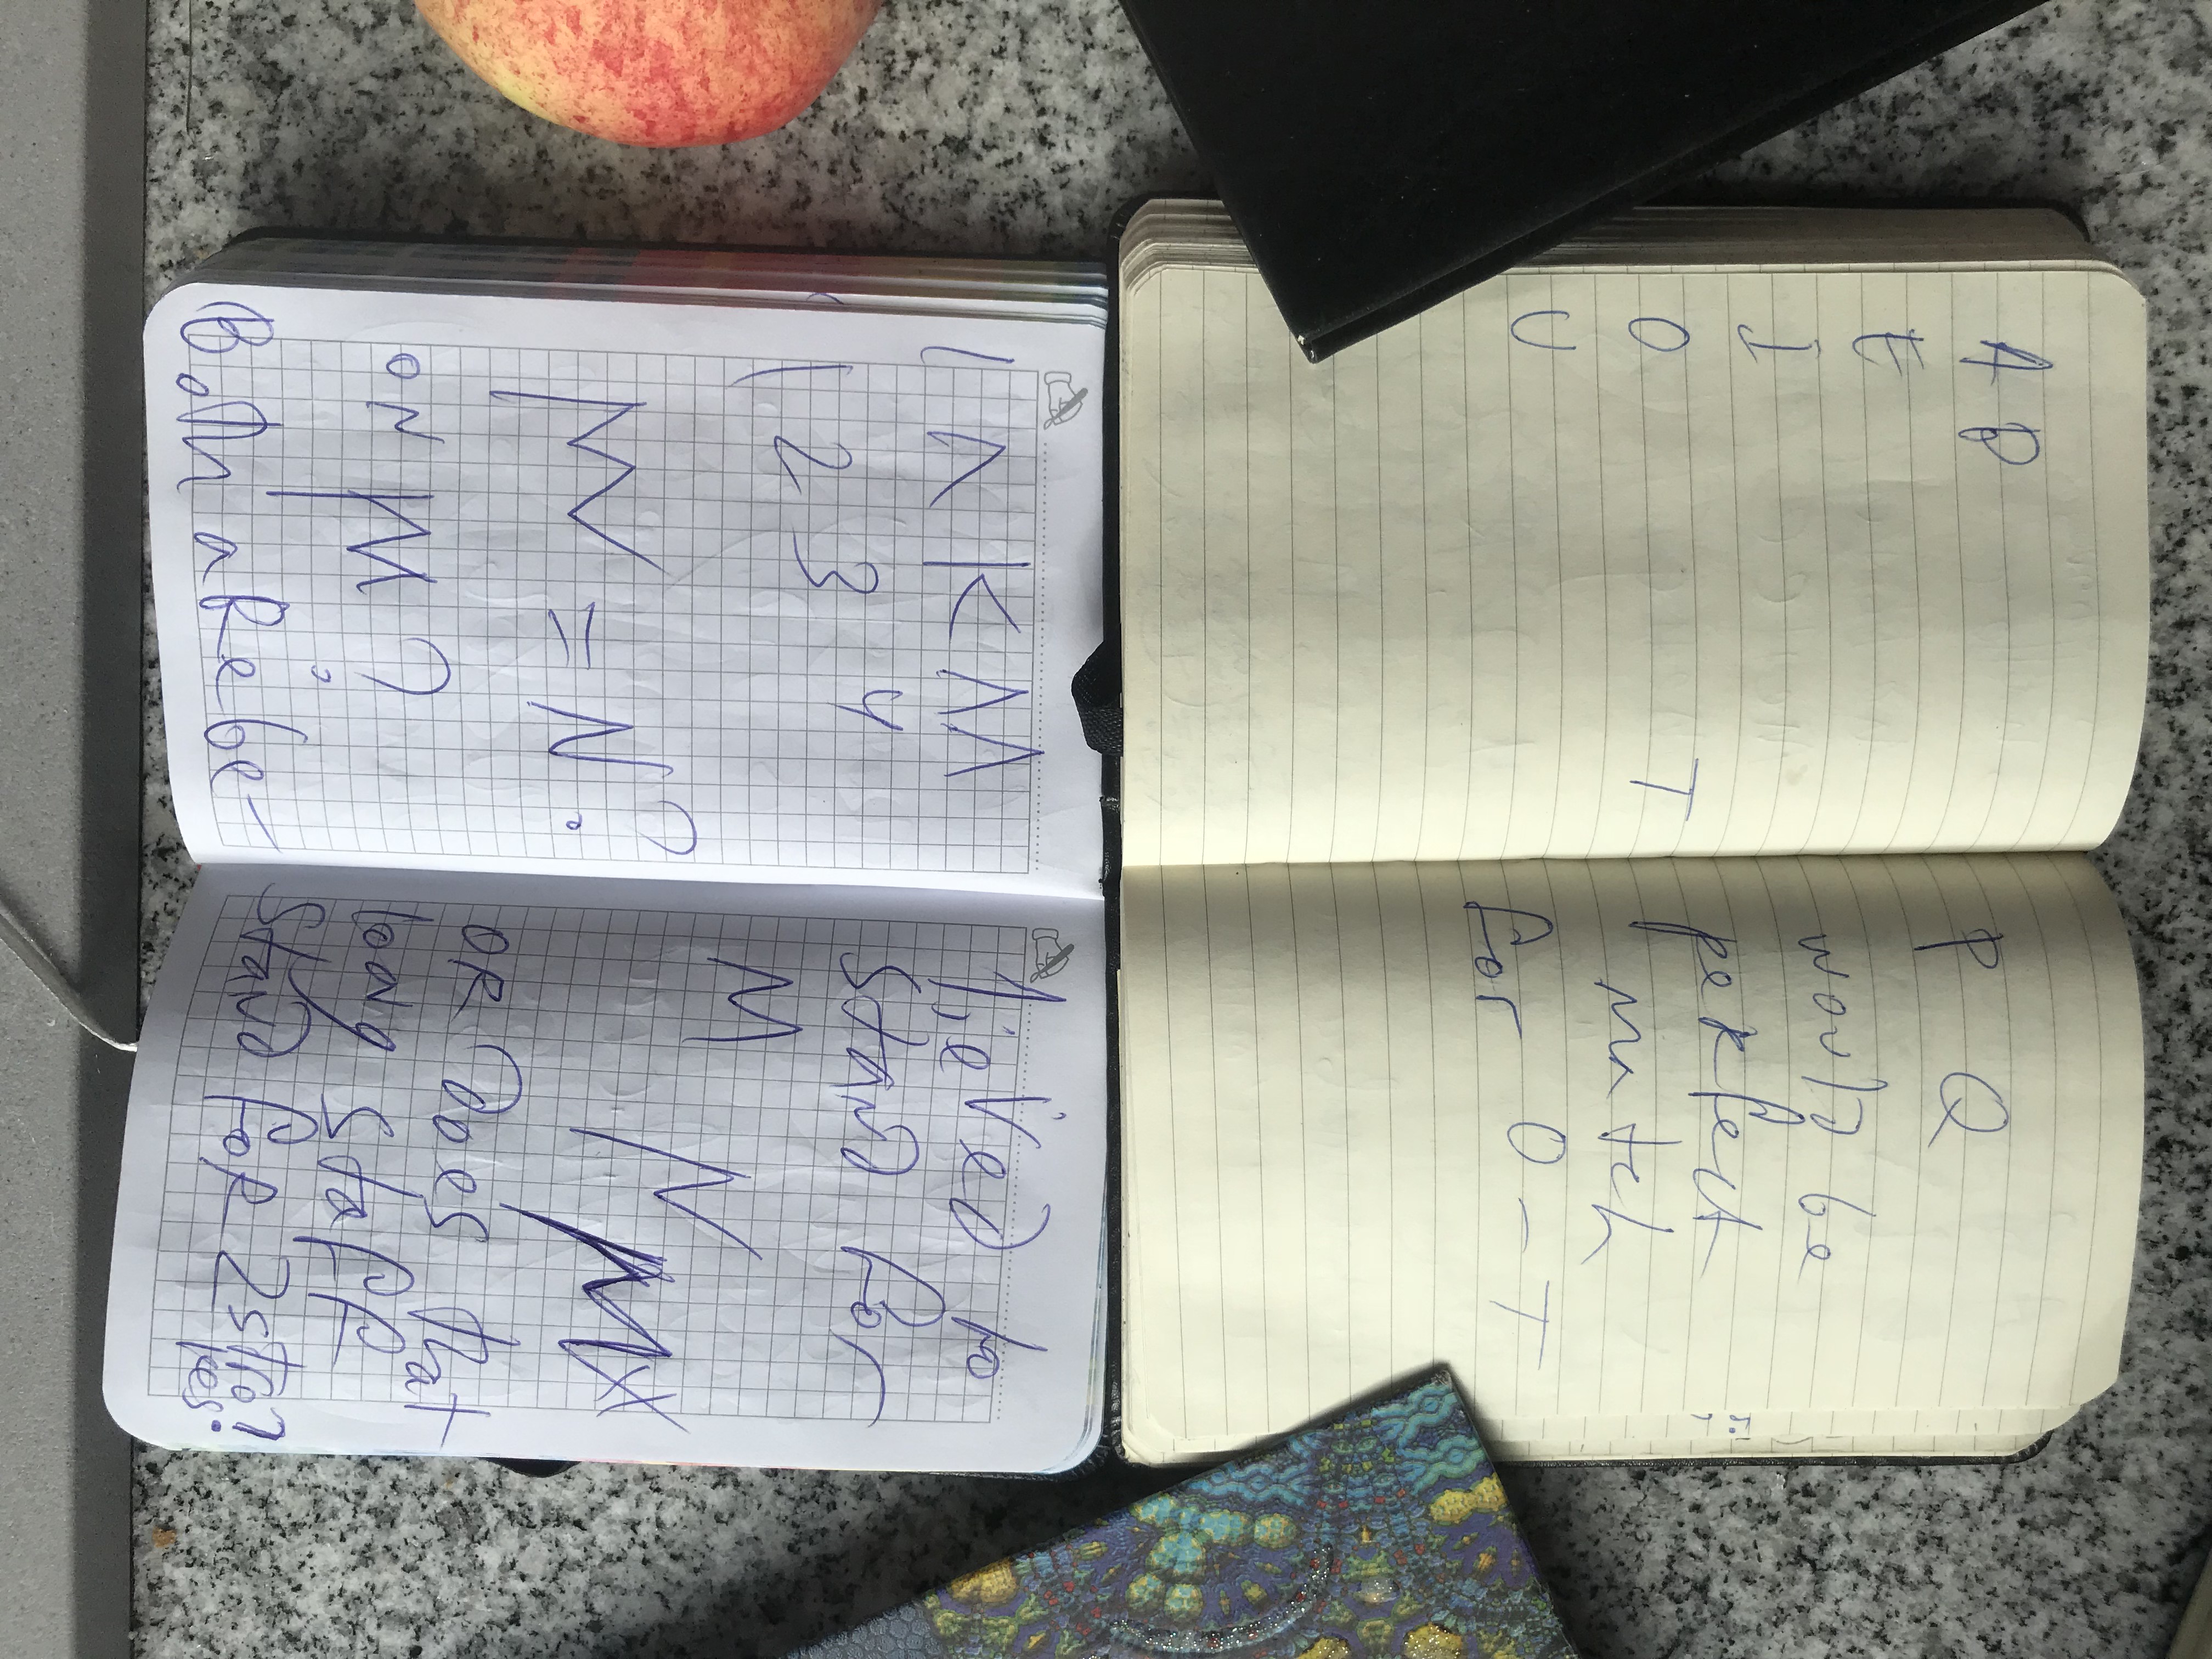 A B
E
I
O T
U
P Q
would be
perfect
match
for O - T
1 2 3 4
M = N?
on M?
Both are be-
stand for
M N
OR does that
long staff
stand for 2 stro
kes?